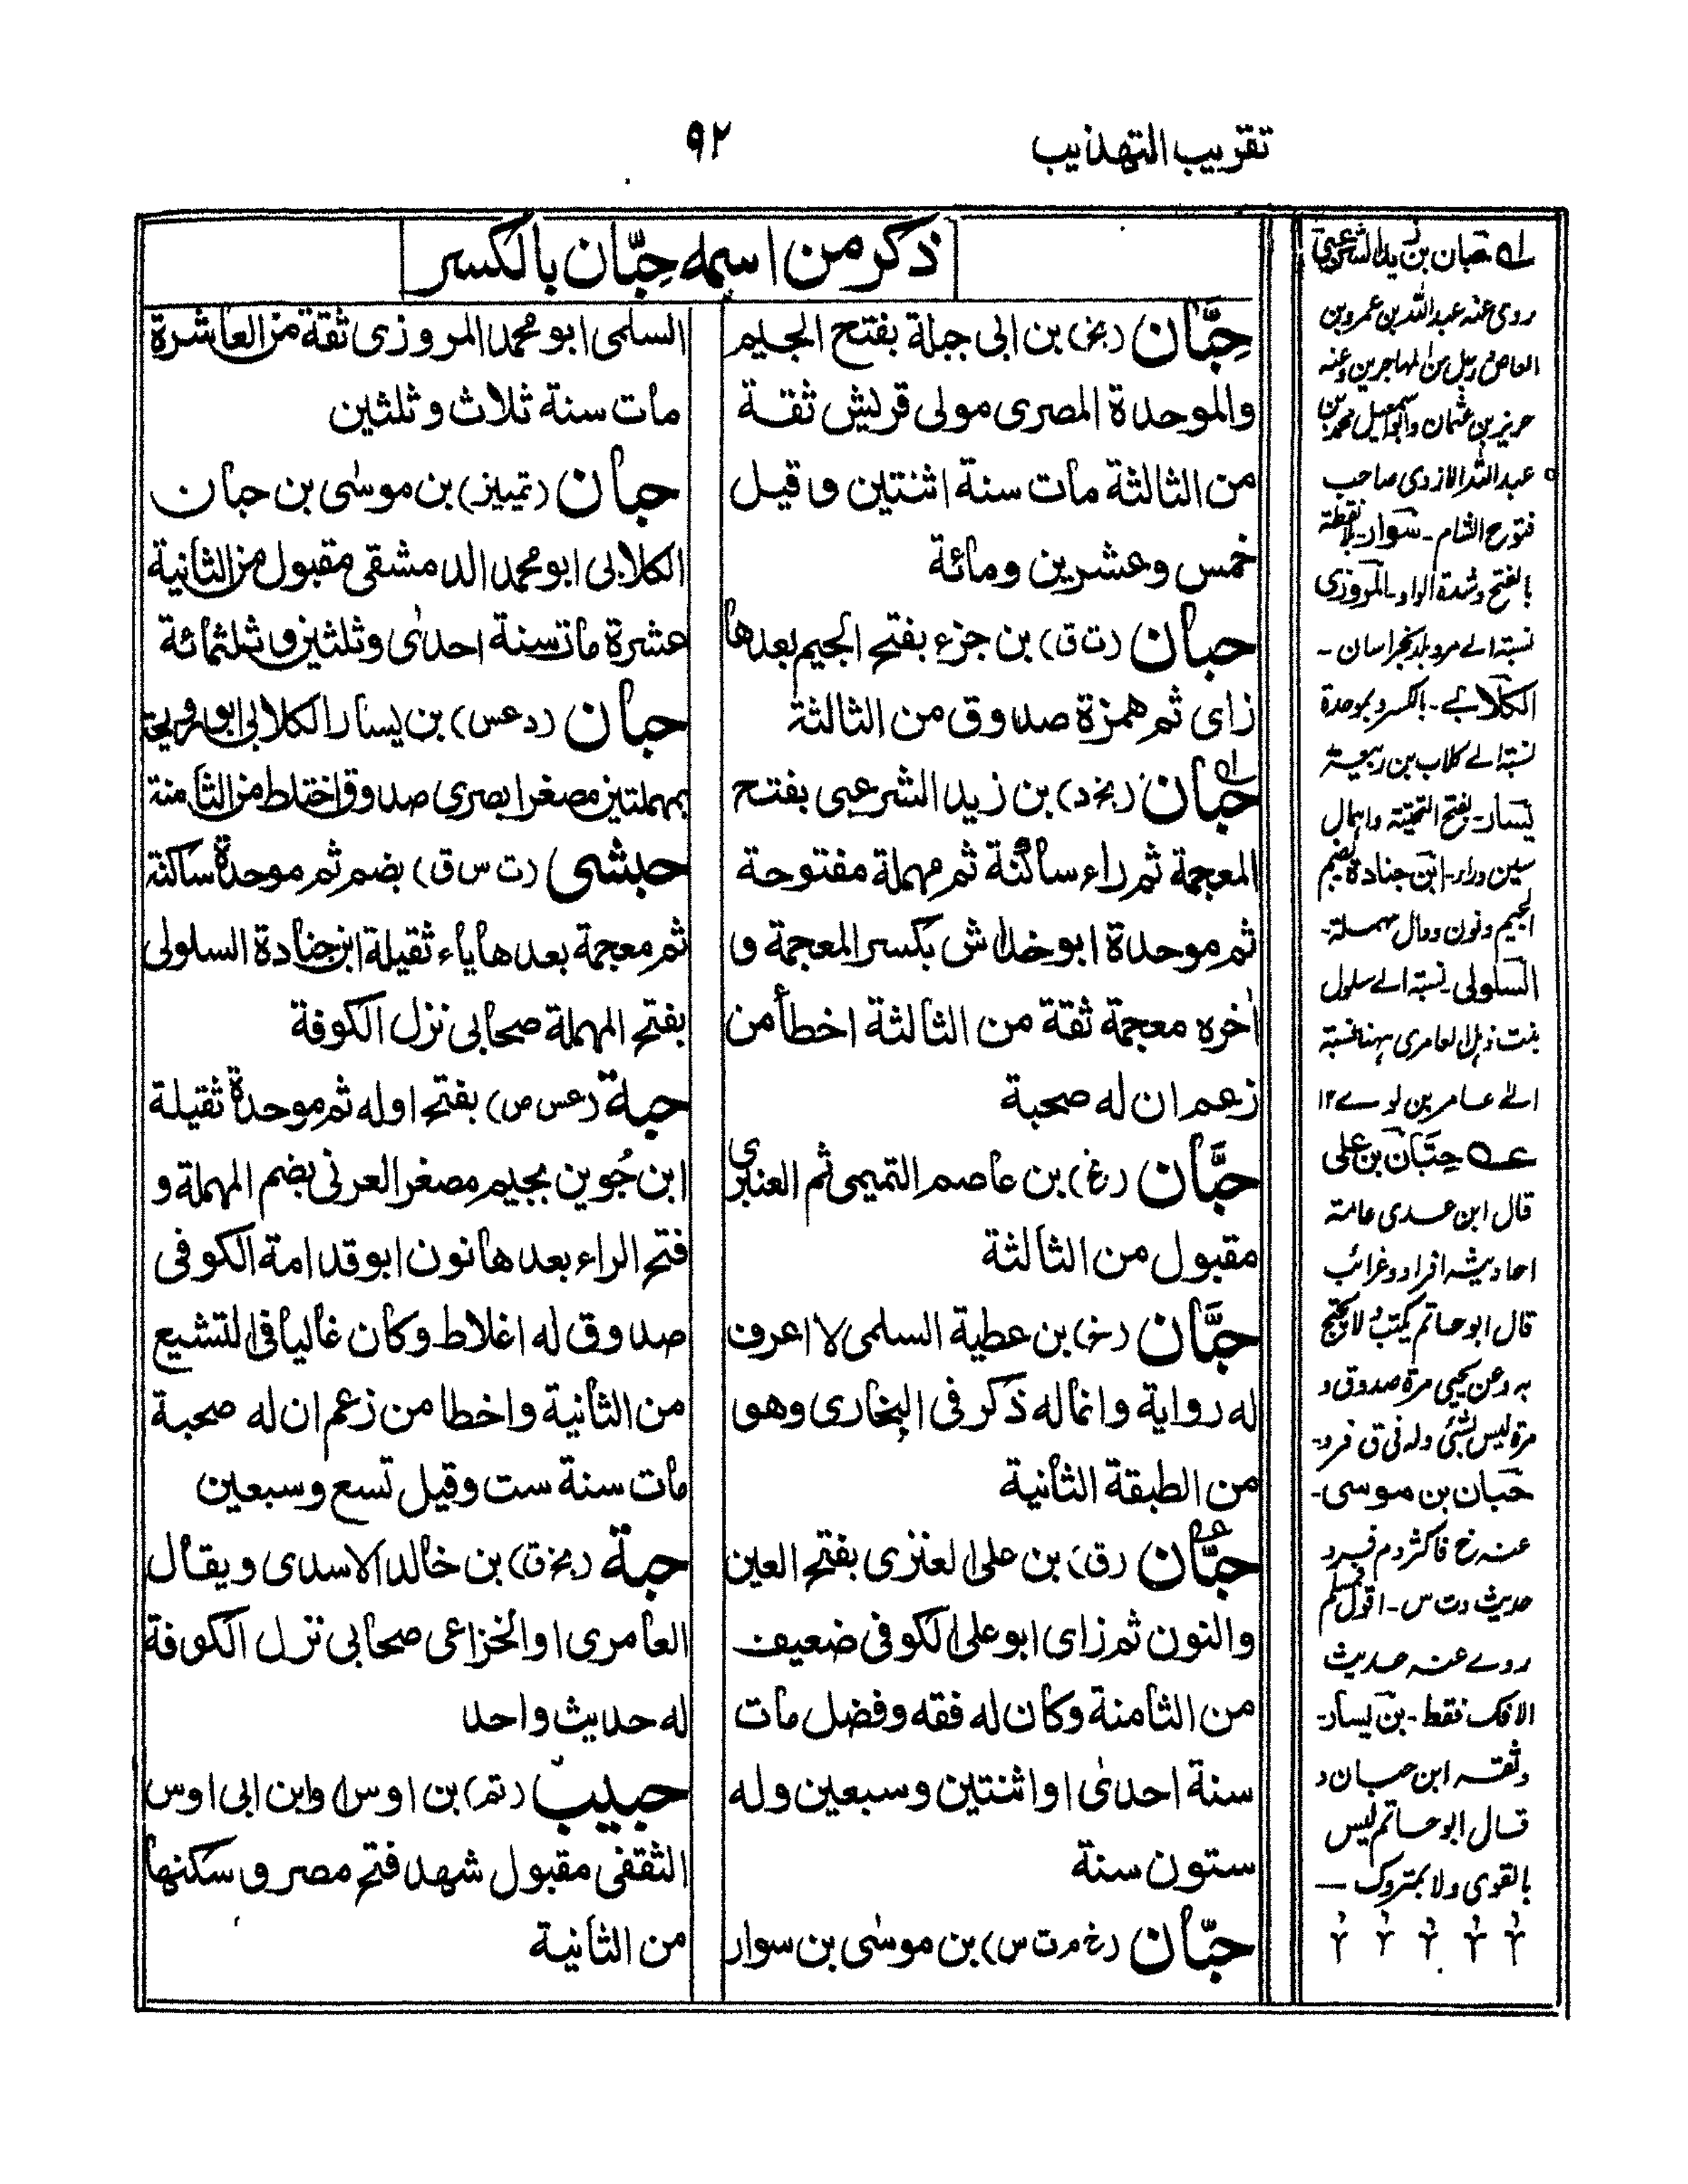 تقريب التهذيب
٩٢
ذكر من اسمه حِبّان بالكسر
حِبَّان (بخ) بن ابى جبلة بفتح الجيم
والموحدة المصرى مولى قريش ثقة
من الثالثة مات سنة اثنتين وقيل
خمس وعشرين ومائة
حبان (ت ق) بن جزء بفتح الجيم بعدها
زاى ثم همزة صدوق من الثالثة
حبان (بخ د) بن زيد الشرعبى بفتح
المعجمة ثم راء ساكنة ثم مهملة مفتوحة
ثم موحدة ابو خداش بكسر المعجمة و
اٰخره معجمة ثقة من الثالثة اخطأ من
زعم ان له صحبة
حبَّان (غ) بن عاصم التميمى ثم العنبرى
مقبول من الثالثة
حبَّان (خ) بن عطية السلمى لا اعرف
له رواية وانما له ذكر فى البخارى وهو
من الطبقة الثانية
حبَّان (ق) بن على العنزى بفتح العين
والنون ثم زاى ابو على الكوفى ضعيف
من الثامنة وكان له فقه وفضل مات
سنة احدىٰ او اثنتين وسبعين وله
ستون سنة
حبّان (خ م ت س) بن موسىٰ بن سوار
السلمى ابو محمد المروزى ثقة من العاشرة
مات سنة ثلاث وثلثين
حبان (تمييز) بن موسىٰ بن حبان
الكلابى ابو محمد الدمشقى مقبول من الثانية
عشرة مات سنة احدىٰ وثلثين وثلثمائة
حبان (د عس) بن يسار الكلابى ابو رويحة
بمهملتين مصغرا بصرى صدوق اختلط من الثامنة
حبشى (ت س ق) بضم ثم موحدة ساكنة
ثم معجمة بعدها ياء ثقيلة ابن جنادة السلولى
بفتح المهملة صحابى نزل الكوفة
حبة (عس ص) بفتح اوله ثم موحدة ثقيلة
ابن جُوين بجيم مصغر العرنى بضم المهملة و
فتح الراء بعدها نون ابو قدامة الكوفى
صدوق له اغلاط وكان غاليا فى التشيع
من الثانية واخطا من زعم ان له صحبة
مات سنة ست وقيل تسع وسبعين
حبة (بخ ق) بن خالد الاسدى ويقال
العامرى او الخزاعى صحابى نزل الكوفة
له حديث واحد
حبيب (تم) بن اوس او ابن ابى اوس
الثقفى مقبول شهد فتح مصر وسكنها
من الثانية
له حبان بن زيد الشرعبى
روى عنه عبد الله بن عمرو بن
العاص رجل من المهاجرين وعنه
حريز بن عثمان وابو اسمعيل محمد بن
عبد الله الازدى صاحب
فتوح الشام - سوار - نقطة
بالفتح وشدة الواو - المروزى
نسبة الے مرو بلد بخراسان -
الكلابے - بالكسر وبموحدة
نسبة الے كلاب بن ربيعة
يسار - بفتح التحتية واہمال
سين وراء - ابن جنادة بضم
الجيم ونون ودال مہملة -
السلولى - نسبة الے سلول
بنت ذہل العامرى ہہنا نسبة
الے عامر بن لوے ١٢
عه حِبَّان بن على
قال ابن عدى عامة
احاديثہ افراد وغرائب
قال ابو حاتم يكتب ولا يحتج
به وعن يحيى مرة صدوق و
مرة ليس بشئى وله فى ق فرد -
حبان بن موسى -
عنہ خ فاكثر وم فرد
حديث وت س - اقول مسلم
روے عنہ حديث
الافك فقط - بن يسار -
وثقہ ابن حبان و
قال ابو حاتم ليس
بالقوى ولا بمتروك —